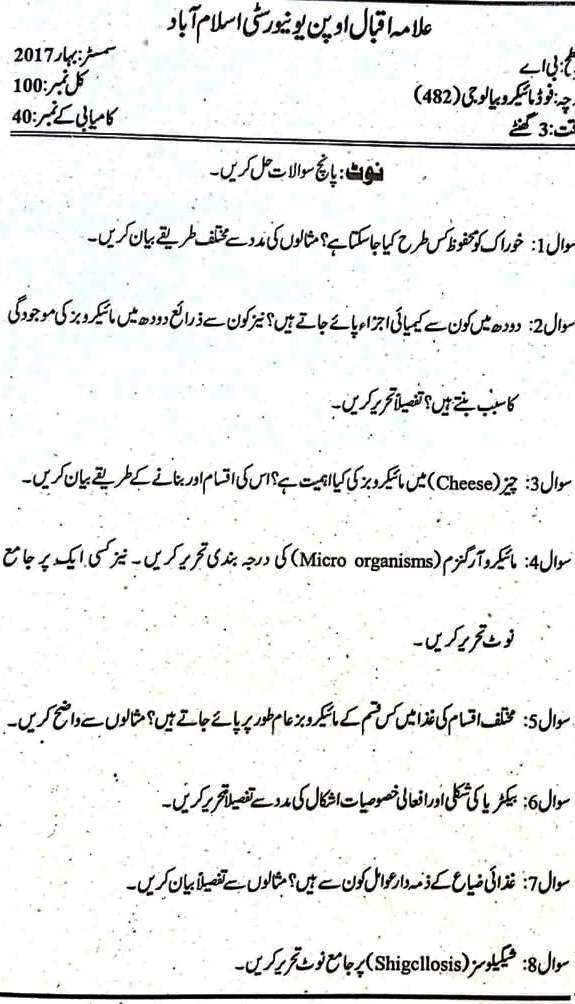 علامہ اقبال اوپن یونیورسٹی اسلام آباد
سطح: بی اے
سمسٹر: بہار 2017
پرچہ: فوڈ مائیکروبیالوجی (482)
کل نمبر: 100
وقت: 3 گھنٹے
کامیابی کے نمبر: 40
نوٹ: پانچ سوالات حل کریں۔
سوال 1: خوراک کو محفوظ کس طرح کیا جاسکتا ہے؟ مثالوں کی مدد سے مختلف طریقے بیان کریں۔
سوال 2: دودھ میں کون سے کیمیائی اجزاء پائے جاتے ہیں؟ نیز کون سے ذرائع دودھ میں مائیکروبز کی موجودگی
کا سبب بنتے ہیں؟ تفصیلاً تحریر کریں۔
سوال 3: چیز (Cheese) میں مائیکروبز کی کیا اہمیت ہے؟ اس کی اقسام اور بنانے کے طریقے بیان کریں۔
سوال 4: مائیکرو آرگنزم (Micro organisms) کی درجہ بندی تحریر کریں۔ نیز کسی ایک پر جامع
نوٹ تحریر کریں۔
سوال 5: مختلف اقسام کی غذا میں کس قسم کے مائیکروبز عام طور پر پائے جاتے ہیں؟ مثالوں سے واضح کریں۔
سوال 6: بیکٹریا کی شکلی اور افعالی خصوصیات اشکال کی مدد سے تفصیلاً تحریر کریں۔
سوال 7: غذائی ضیاع کے ذمہ دار عوامل کون سے ہیں؟ مثالوں سے تفصیلاً بیان کریں۔
سوال 8: شیگیلوسز (Shigcllosis) پر جامع نوٹ تحریر کریں۔